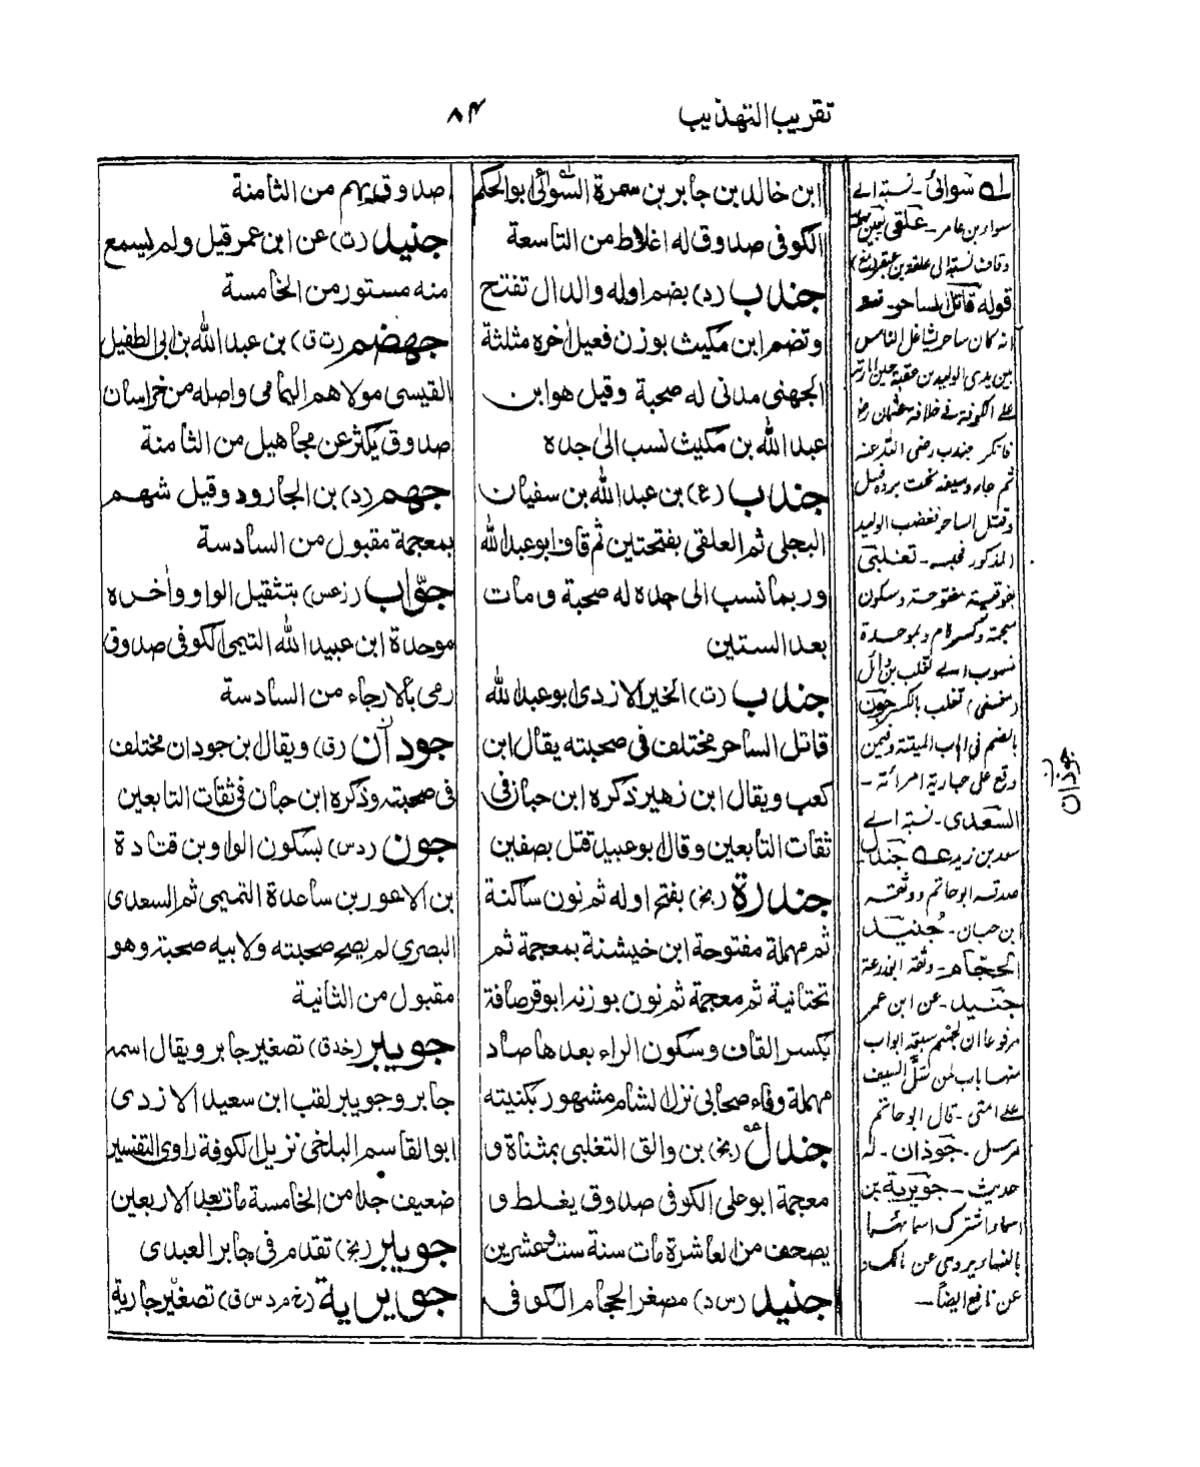 تقريب التهذيب
٨٤
ابن خالد بن جابر بن سمرة السوائى ابو الحكم
الكوفى صدوق له اغلاط من التاسعة
جندب (د) بضم اوله والدال تفتح
وتضم ابن مكيث بوزن فعيل اخره مثلثة
الجهنى مدنى له صحبة وقيل هو ابن
عبد الله بن مكيث نسب الى جده
جندب (ع) بن عبد الله بن سفيان
البجلى ثم العلقى بفتحتين ثم قاف ابو عبد الله
وربما نسب الى جده له صحبة ومات
بعد الستين
جندب (ت) الخير الازدى ابو عبد الله
قاتل الساحر مختلف فى صحبته يقال ابن
كعب ويقال ابن زهير ذكره ابن حبان فى
ثقات التابعين وقال ابو عبيد قتل بصفين
جندرة (بخ) بفتح اوله ثم نون ساكنة
ثم مهملة مفتوحة ابن خيشنة بمعجمة ثم
تحتانية ثم معجمة ثم نون بوزنه ابو قرصافة
بكسر القاف وسكون الراء بعدها صاد
مهملة وفاء صحابى نزل الشام مشهور بكنيته
جندل (بخ) بن والق التغلبى بمثناة و
معجمة ابو على الكوفى صدوق يغلط و
يصحف من العاشرة مات سنة ست وعشرين
جنيد (س د) مصغر الحجام الكوفى
صدوق يهم من الثامنة
جنيد (ت) عن ابن عمر قيل ولم يسمع
منه مستور من الخامسة
جهضم (ت ق) بن عبد الله بن ابى الطفيل
القيسى مولاهم اليمامى واصله من خراسان
صدوق يكثر عن مجاهيل من الثامنة
جهم (د) بن الجارود وقيل شهم
بمعجمة مقبول من السادسة
جوّاب (ز عس) بتثقيل الواو واخره
موحدة ابن عبيد الله التيمى الكوفى صدوق
رمى بالارجاء من السادسة
جودان (ق) ويقال ابن جودان مختلف
فى صحبته وذكره ابن حبان فى ثقات التابعين
جون (د س) بسكون الواو بن قتادة
بن الاعور بن ساعدة التميمى ثم السعدى
البصرى لم يصح صحبته ولابيه صحبة وهو
مقبول من الثانية
جويبر (خد ق) تصغير جابر ويقال اسمه
جابر وجويبر لقب ابن سعيد الازدى
ابو القاسم البلخى نزيل الكوفة راوى التفسير
ضعيف جدا من الخامسة مات بعد الاربعين
جويبر (بخ) تقدم فى جابر العبدى
جويرية (خ م د س ق) تصغير جارية
له سوائى - نسبة الے
سواء بن عامر - علقى
قوله قاتل الساحر
انه كان ساحر يشاغل الناس
بين يدى الوليد بن عقبة
على الكوفة فى خلافة عثمان رض
فانكر جندب رضى الله عنه
ثم جاء وسيفه تحت برده فيل
وقتل الساحر فغضب الوليد
المذكور فحبسه - تغلبى
بفوقية مفتوحة وسكون
معجمة وكسر لام وبموحدة
منسوب الے تغلب بن وائل
(مغنى) تغلب بالكسر جون
ورقع على جارية امرائة -
السعدى - نسبة الے
سعد بن زيد عه جندل
صدقه ابو حاتم ووثقه
ابن حبان - جنيد
الحجام - وثقه ابو زرعة
جنيد - عن ابن عمر
مرفوعا ان لجهنم سبعة ابواب
منها باب لمن سل السيف
على امتى - قال ابو حاتم
مرسل - جوذان - له
حديث - جويرية بن
عن نافع ايضاً -
جوذان